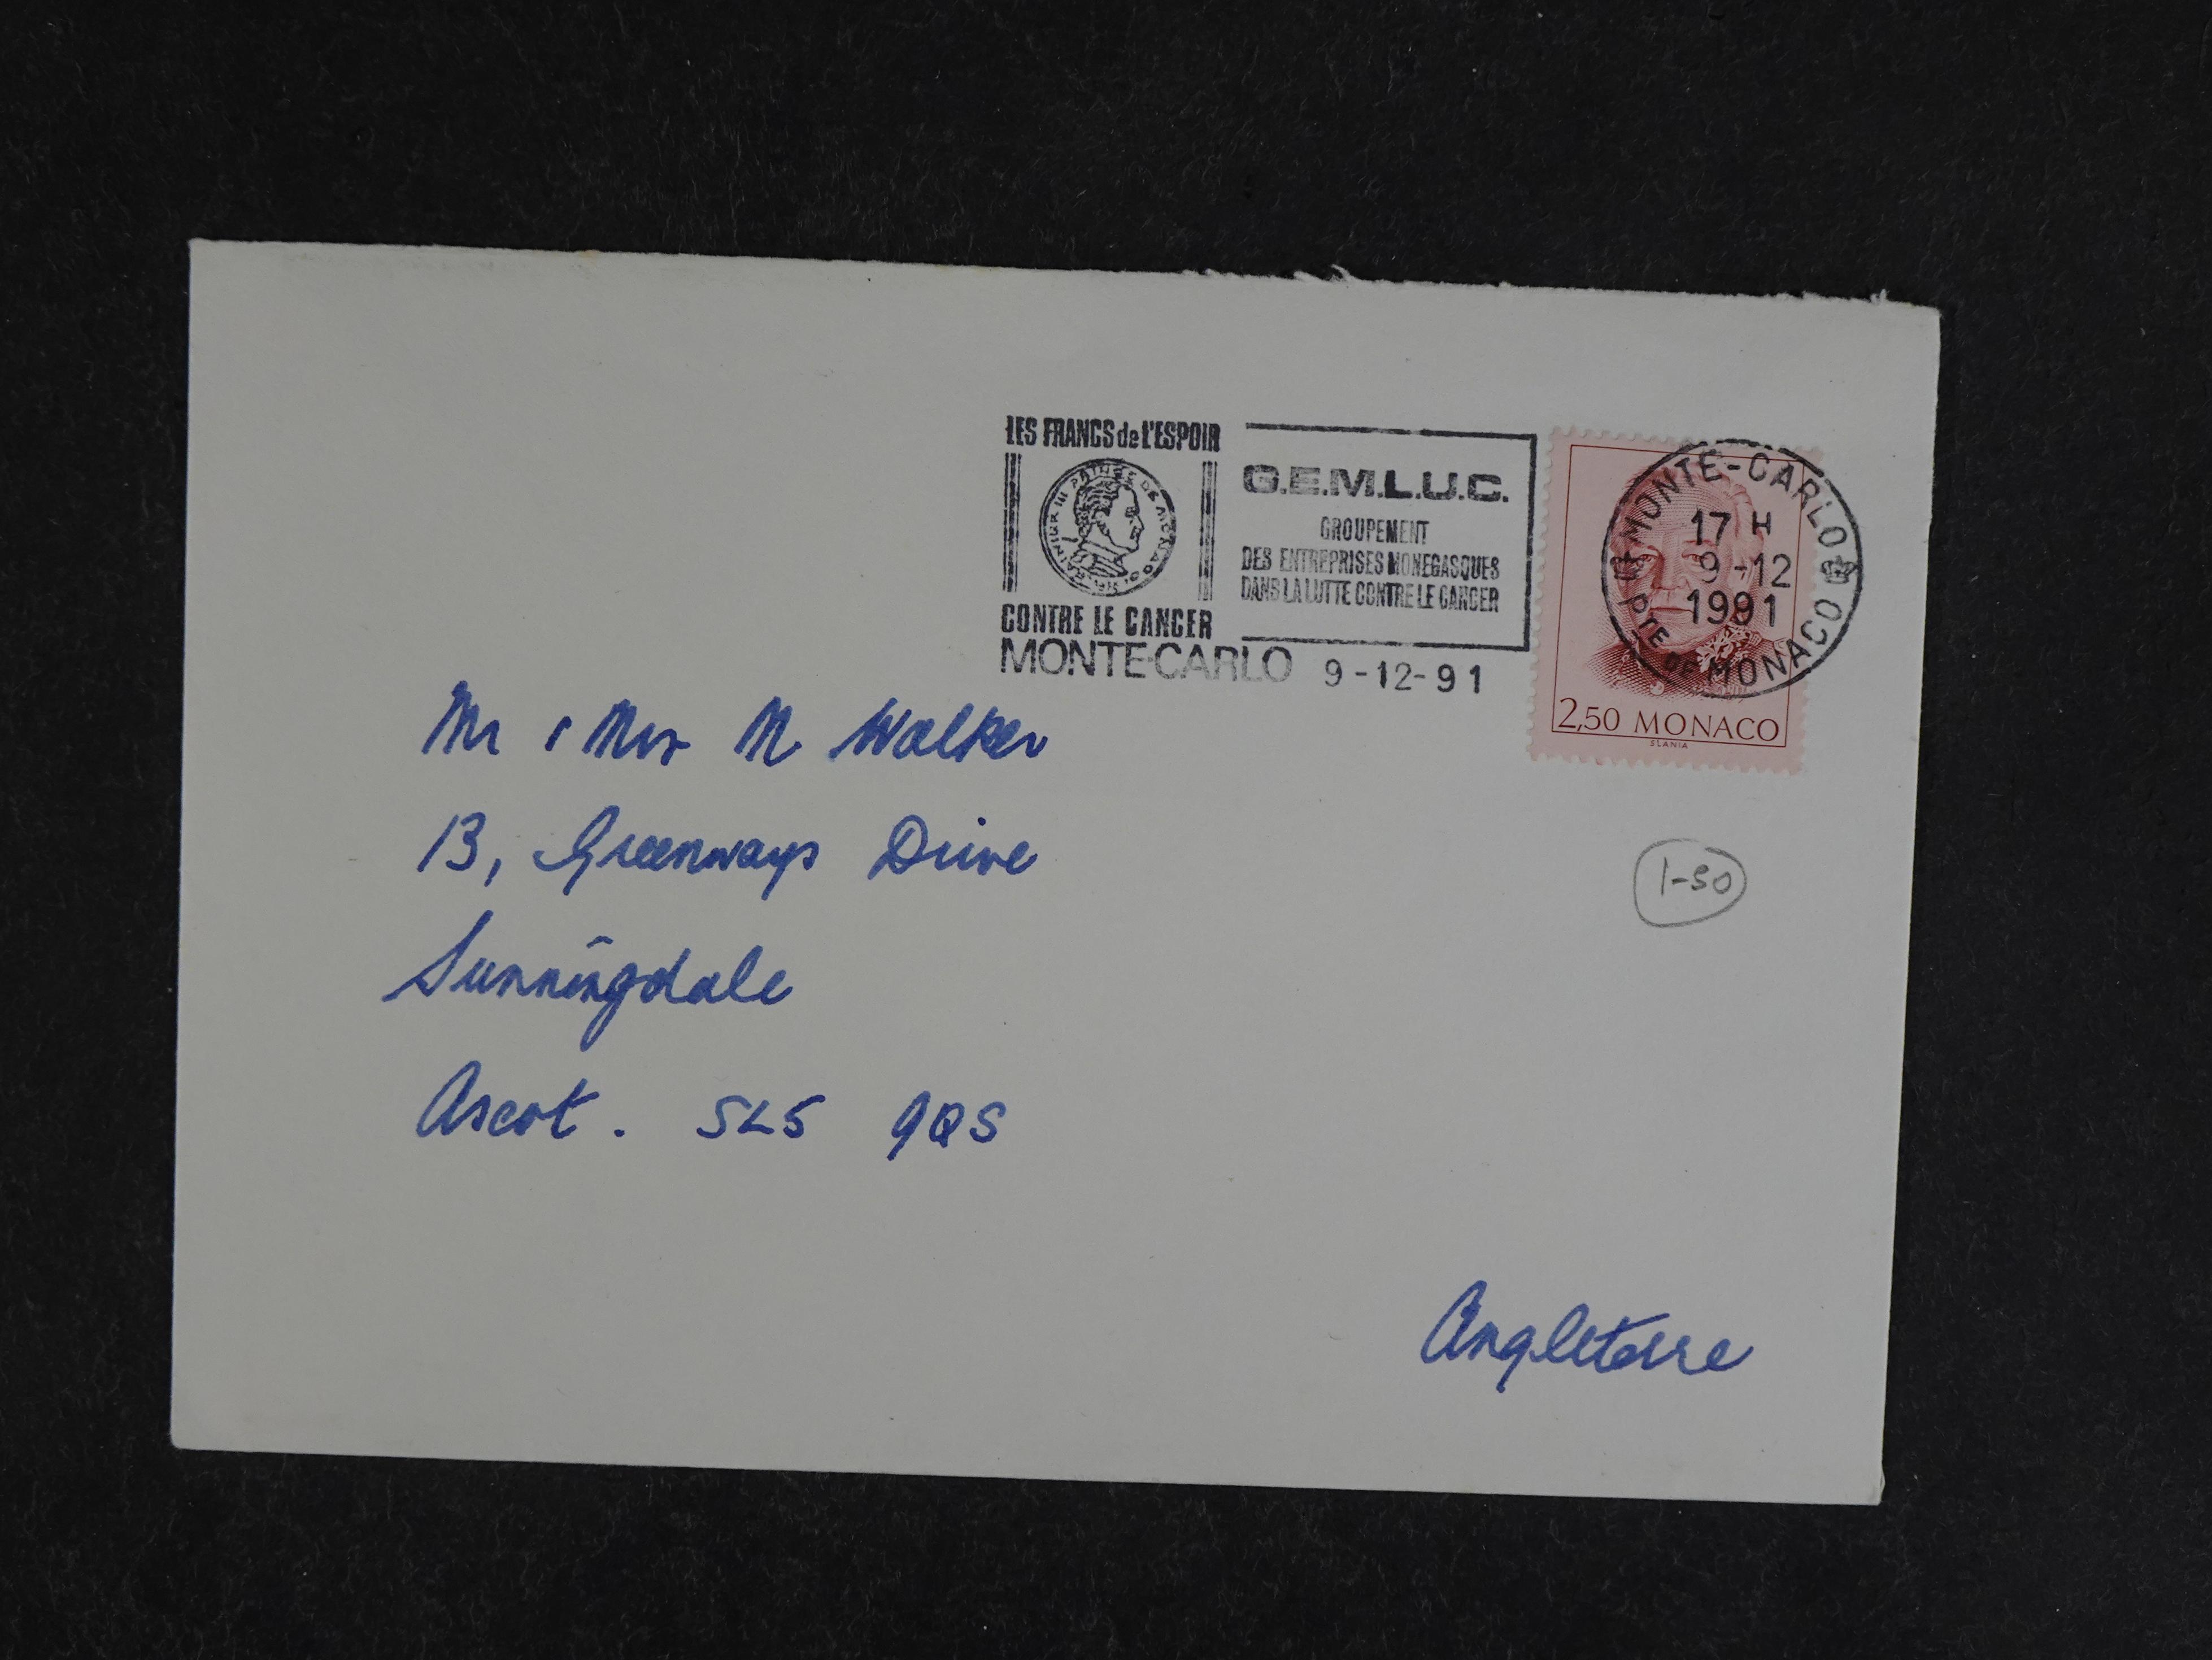 LES FRANCS de L'ESPOIR
RAINIER III PRINCE DE MONACO
CONTRE LE CANCER
MONTE-CARLO 9-12-91
G.E.M.L.U.C.
GROUPEMENT
DES ENTREPRISES MONEGASQUES
DANS LA LUTTE CONTRE LE CANCER
MONTE-CARLO
17 H
9-12
1991
PTE DE MONACO
2,50 MONACO
SLANIA
Mr & Mrs M Walker
13, Greenways Drive
1-50
Sunningdale
Ascot. SL5 9QS
Angleterre